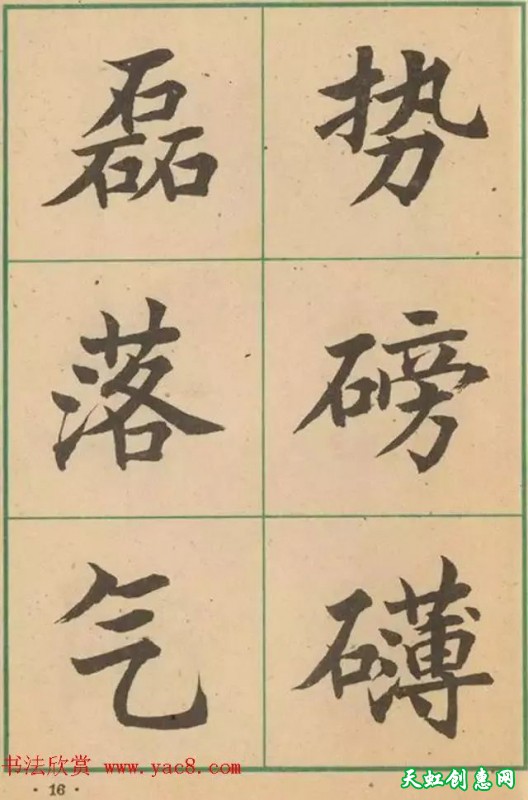 磊落气
势磅礴
书法欣赏 www.yac8.com
· 16 ·
天虹创惠网